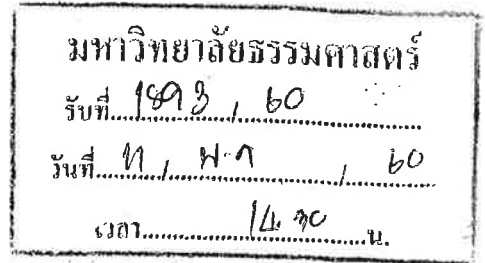 มหาวิทยาลัยธรรมศาสตร์
รับที่ 1893 / 60
วันที่ / พ.ค / 60
เวลา 14.30 น.